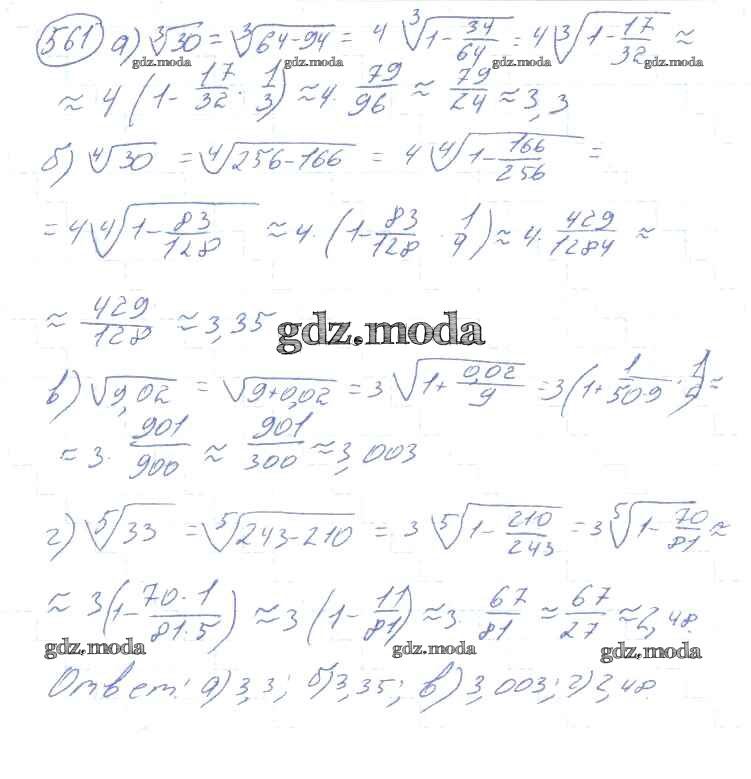 561 а) ∛30 = ∛(64-94) = 4 ∛(1 - 34/64) = 4 ∛(1 - 17/32) ≈
gdz.moda gdz.moda gdz.moda gdz.moda
≈ 4 (1 - 17/32 · 1/3) ≈ 4 · 79/96 ≈ 79/24 ≈ 3,3
б) ∜30 = ∜(256-166) = 4 ∜(1 - 166/256) =
= 4 ∜(1 - 83/128) ≈ 4 · (1 - 83/128 · 1/4) ≈ 4 · 429/1284 ≈
≈ 429/128 ≈ 3,35
gdz.moda
в) √9,02 = √(9+0,02) = 3 √(1 + 0,02/9) = 3 (1 + 1/(50·9) · 1/2) ≈
= 3 · 901/900 ≈ 901/300 ≈ 3,003
г) ⁵√33 = ⁵√(243-210) = 3 ⁵√(1 - 210/243) = 3 ⁵√(1 - 70/81) ≈
≈ 3 (1 - 70·1/81·5) ≈ 3 (1 - 11/81) ≈ 3 · 67/81 ≈ 67/27 ≈ 2,48.
gdz.moda gdz.moda gdz.moda
Ответ: а) 3,3; б) 3,35; в) 3,003; г) 2,48.